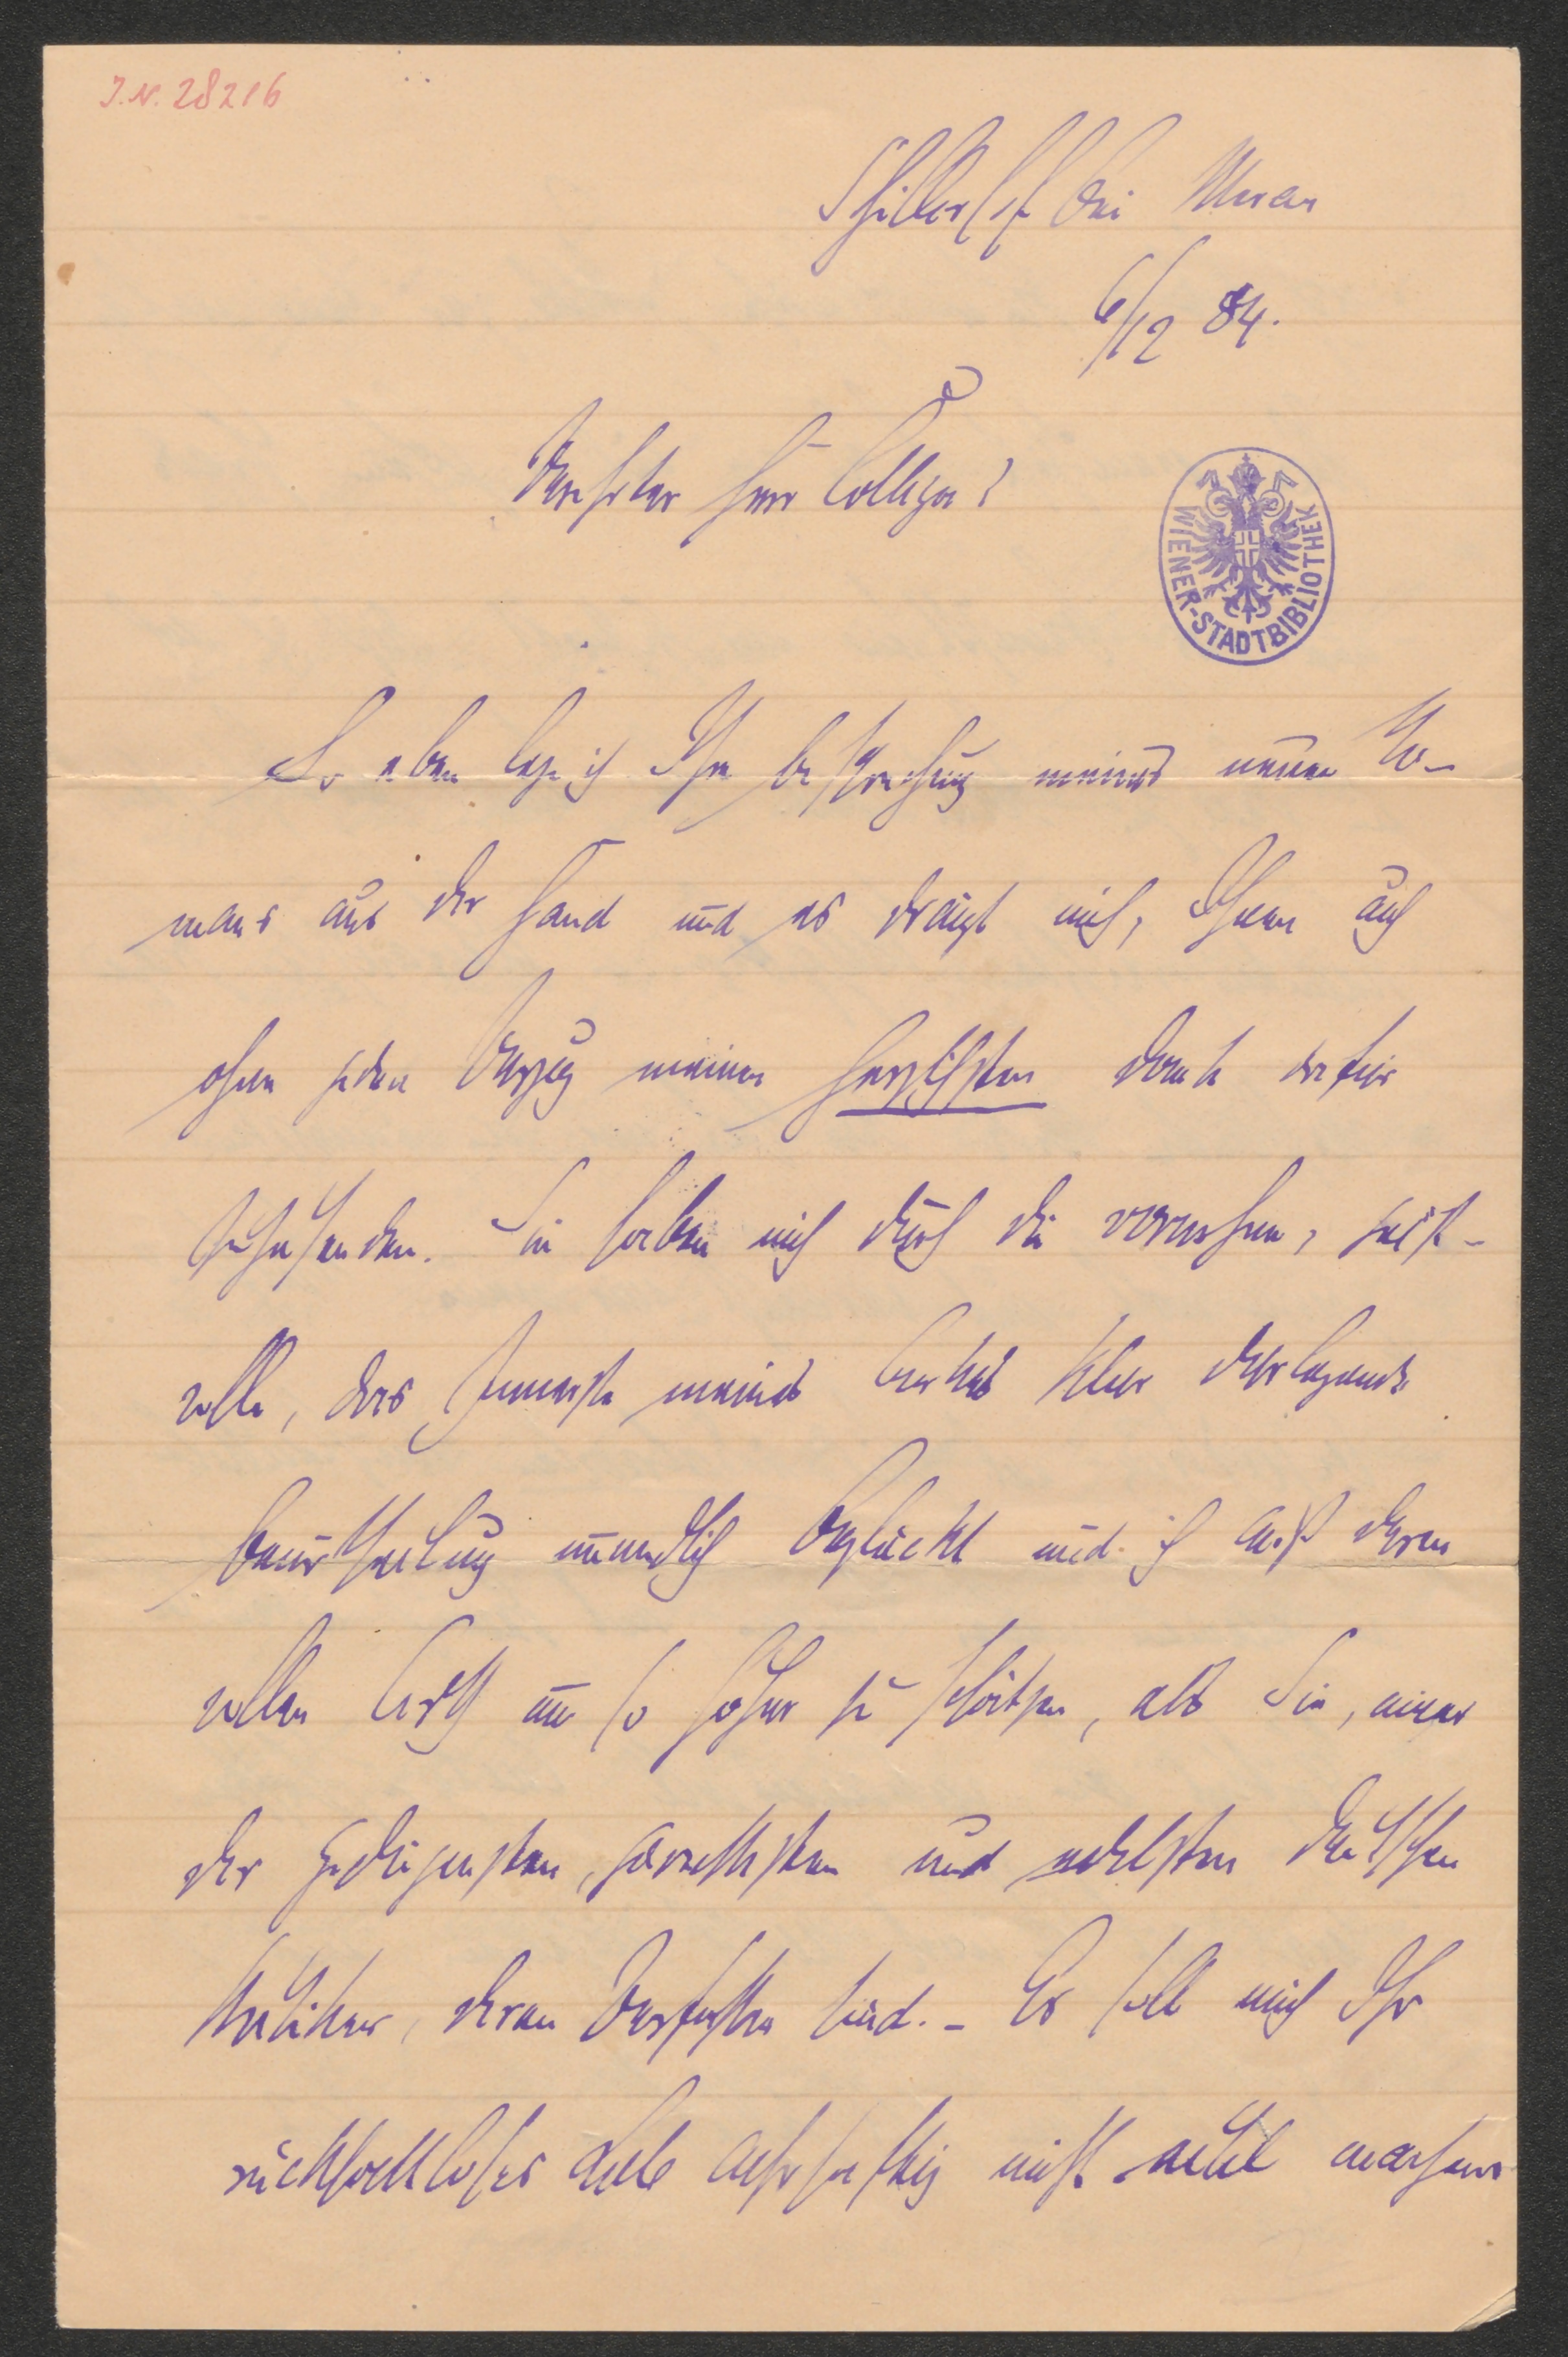 J.N. 28216
Schillerhof bei Meran
6/12 84.
Verehrter Herr College!
WIENER-STADTBIBLIOTHEK
So eben lege ich Ihre Besprechung meines neuen Ro-
mans aus der Hand und es drängt mich, Ihnen auch
ohne jeden Verzug meinen herzlichsten Dank dafür
zu senden. Sie haben mich durch die vornehme, geist-
volle, das Innerste meines Werkes klar darlegende
Beurtheilung unendlich beglückt und ich weiß deren
vollen Werth um so höher zu schätzen, als Sie, einer
der gediegensten, gerechtesten und edelsten deutschen
Kritiker, deren Verfasser sind. – Es soll mich Ihr
rückhaltloses Lob wahrhaftig nicht eitel machen